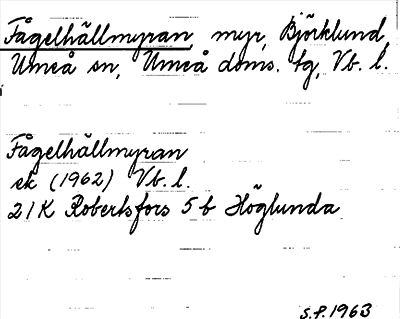 Fågelhällmyran, myr, Björklund,
Umeå sn, Umeå doms. tg, Vb. l.
Fågelhällmyran
ek (1962) Vb. l.
21K Robertsfors 5b Höglunda
S.F. 1963